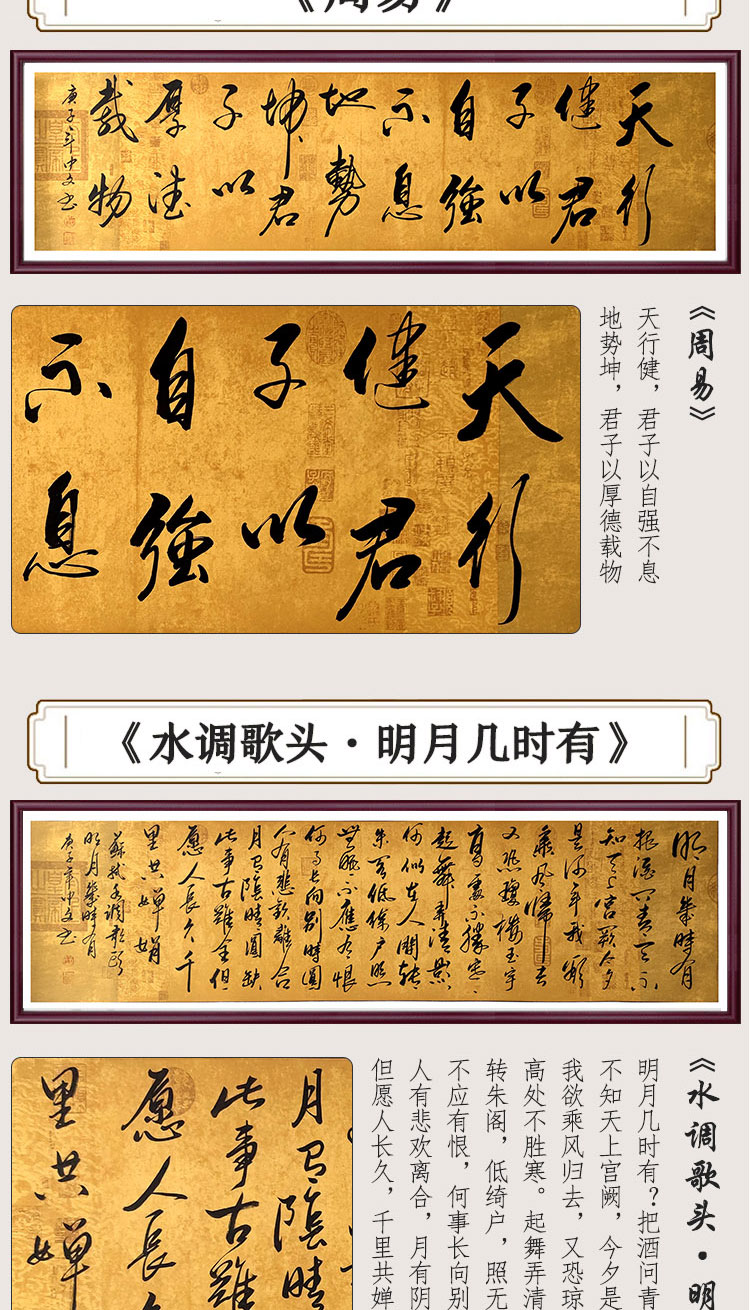 《周易》
天行
健君
子以
自強
不息
地勢
坤君
子以
厚德
載物
庚子年中文书
《周易》
天行健，君子以自强不息
地势坤，君子以厚德载物
天行
健君
子以
自強
不息
《水调歌头·明月几时有》
明月幾時有
把酒問青天不
知天上宫闕今夕
是何年我欲
乘風歸去
又恐瓊樓玉宇
高處不勝寒
起舞弄清影
何似在人間轉
朱閣低綺户照
無眠不應有恨
何事長向別時圓
人有悲歡離合
月有陰晴圓缺
此事古難全但
愿人長久千
里共嬋娟
蘇軾水調歌頭
明月幾時有
庚子年中文书
《水调歌头·明
明月几时有？把酒问青
不知天上宫阙，今夕是
我欲乘风归去，又恐琼
高处不胜寒。起舞弄清
转朱阁，低绮户，照无
不应有恨，何事长向别
人有悲欢离合，月有阴
但愿人长久，千里共婵
月有陰晴
此事古難
愿人長久
里共嬋